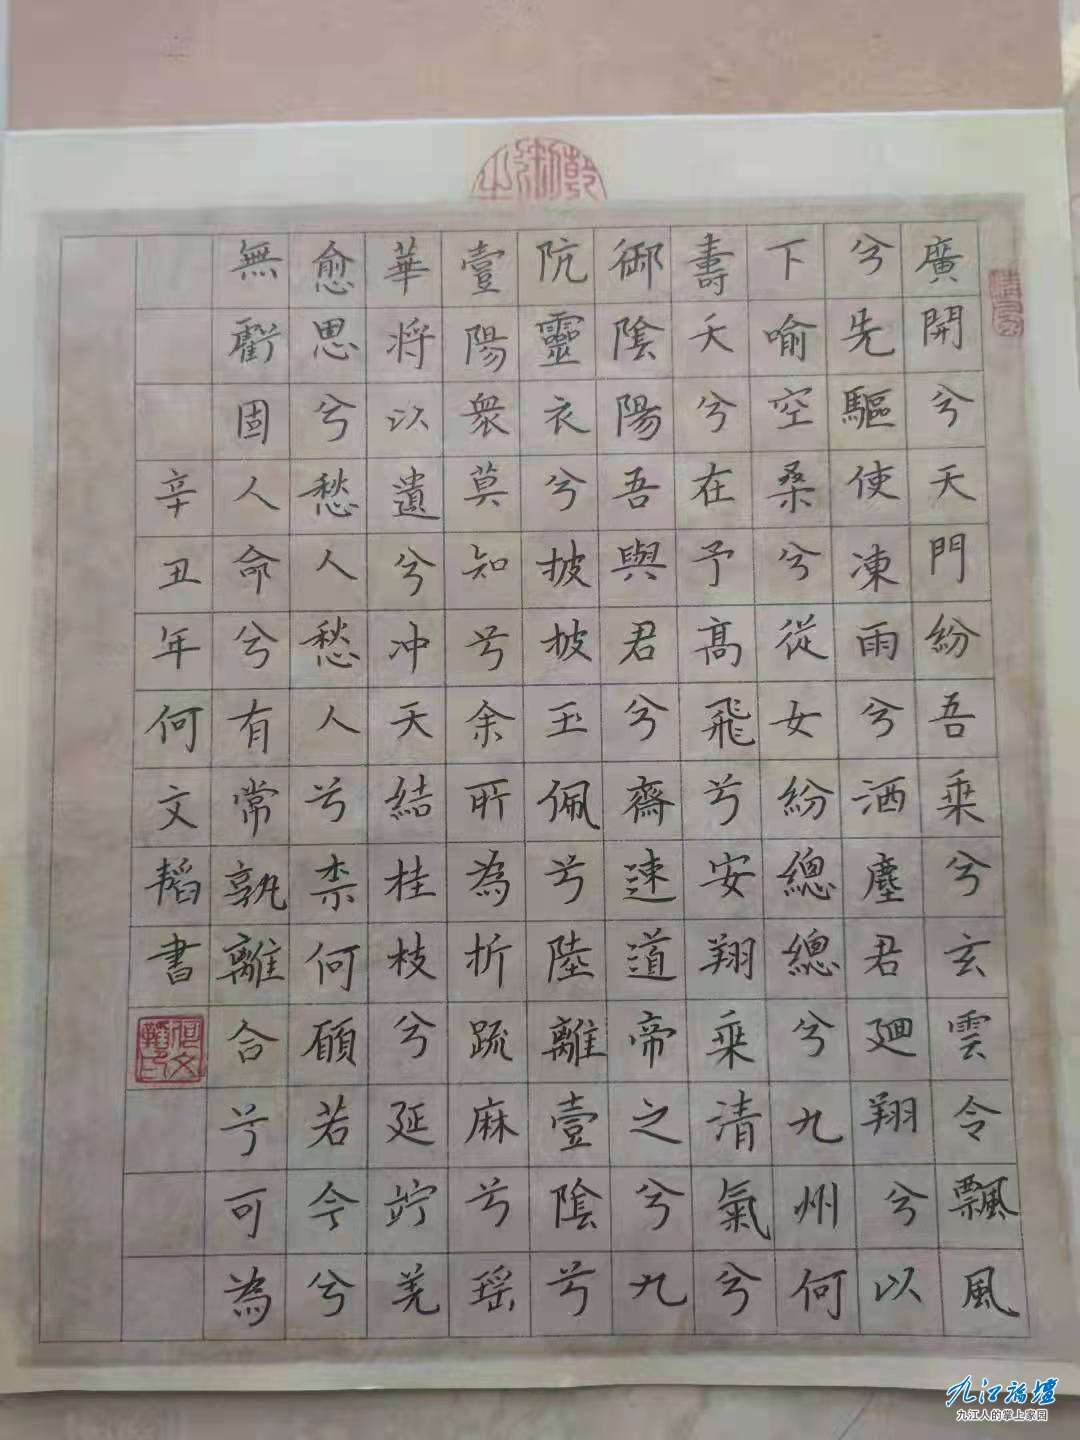 廣開兮天門紛吾乘兮玄雲令飄風
兮先驅使凍雨兮洒塵君廻翔兮以
下喻空桑兮從女紛總總兮九州何
壽夭兮在予高飛兮安翔乘清氣兮
御陰陽吾與君兮齋速道帝之兮九
阬靈衣兮披披玉佩兮陸離壹陰兮
壹陽衆莫知兮余所為折疏麻兮瑶
華将以遺兮冲天結桂枝兮延竚羌
愈思兮愁人愁人兮柰何願若今兮
無虧固人命兮有常孰離合兮可為
辛丑年何文韜書
九江论坛
九江人的掌上家园